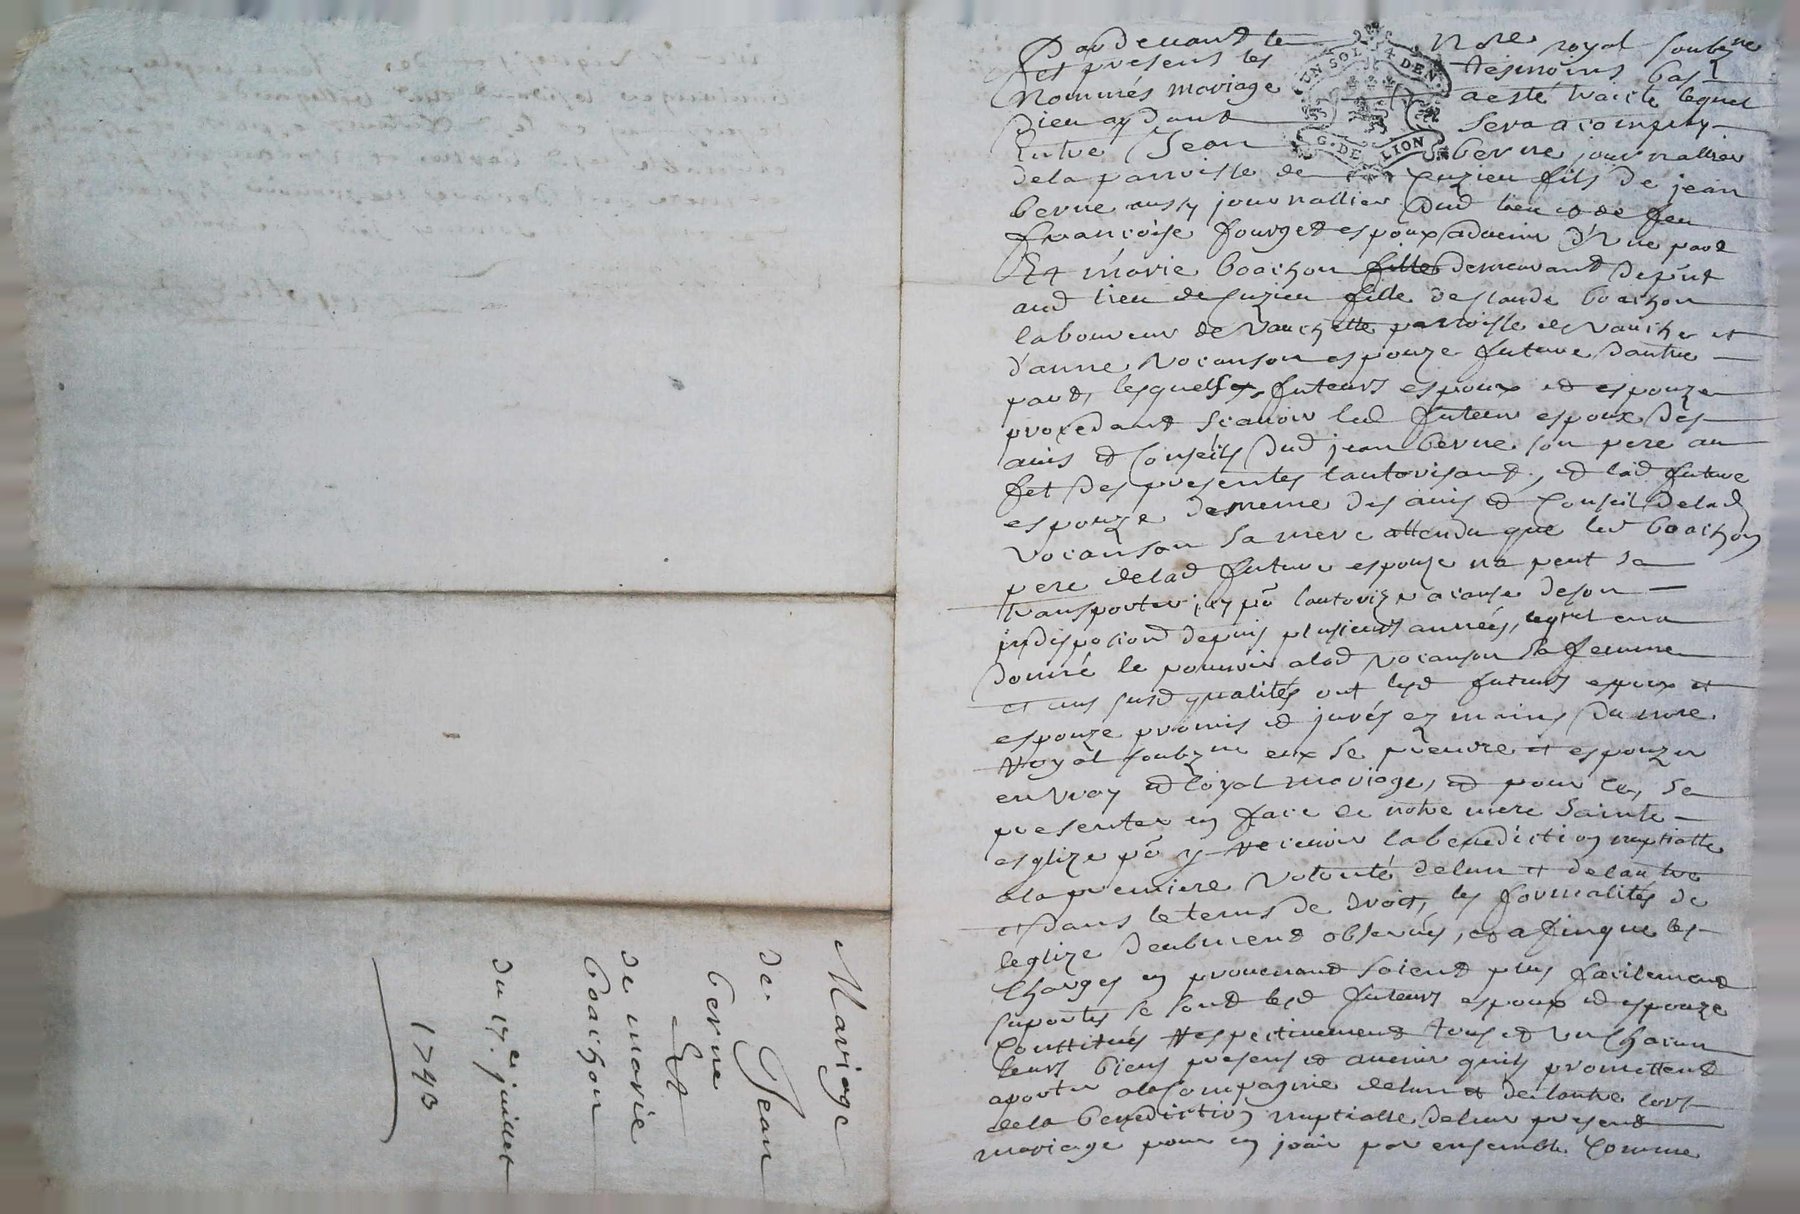 Mariage
de Jean
berne
Et
de marie
boaichon
du 17e juillet
1743
UN SOL 4 DEN
G. DE LION
Pardevant le Nore royal soubzne
et presens les tesmoins bas
nommés mariage a esté traicté lequel
Dieu aydant sera acomply
Entre Jean berne journallier
de la parroisse de Cuzieu fils de jean
berne aussy journallier dud lieu et de feu
francoise fourget espoux advenir d'Une part
Et marie boaichon fille demeurant
aud lieu de Cuzieu fille de Claude boaichon
laboureur de Vauchette parroisse de
d'anne Vocanson espouze future d'autre
part, lesquels futeurs espoux et espouze
procedant scavoir led futeur espoux des
avis et Conseils dud jean berne son pere au
fet des presentes l'autorisant, et lad future
espouze de meme des avis et Conseil de lad
Vocanson sa mere attendu que led boaichon
pere de lad future espouze ne peut se
transporter icy pr l'autorizer a cause de son
indisposiond depuis plusieurs années, lequel en a
donné le pouvoir a lad Vocanson sa femme
et aus susd qualités ont lesd futeurs espoux et
espouze promis et jurés ez mains du nore
Royal soubzne eux se prendre et espouzer
en vray et loyal mariage, et pour ce, se
presenter en face de notre mere sainte
esglize pr y recevoir la benediction nuptialle
a la premiere volonté de l'un et de l'autre
et dans le tems de droit, les formalités de
leglize deubment observées, et afin que les
Charges en provenant soient plus facilement
suportés se sont lesd futeurs espoux et espouze
Constitués Respectivement tous et un Chacun
leurs biens presens et avenir quils promettent
aporter a la Compagnie de l'un et de l'autre lors
de la benediction nuptialle de leur present
mariage pour en jouir par ensemble Comme